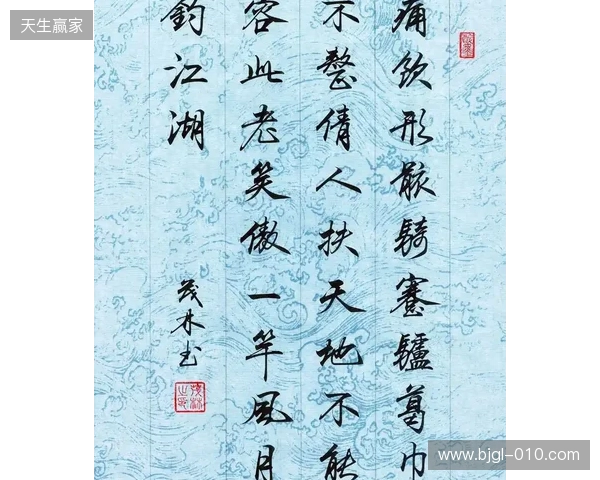 天生赢家
痛飲形骸騎蹇驢葛巾
不整倩人扶天地不能
容此老笑傲一竿風月
釣江湖
茂林书
www.bjgl-010.com